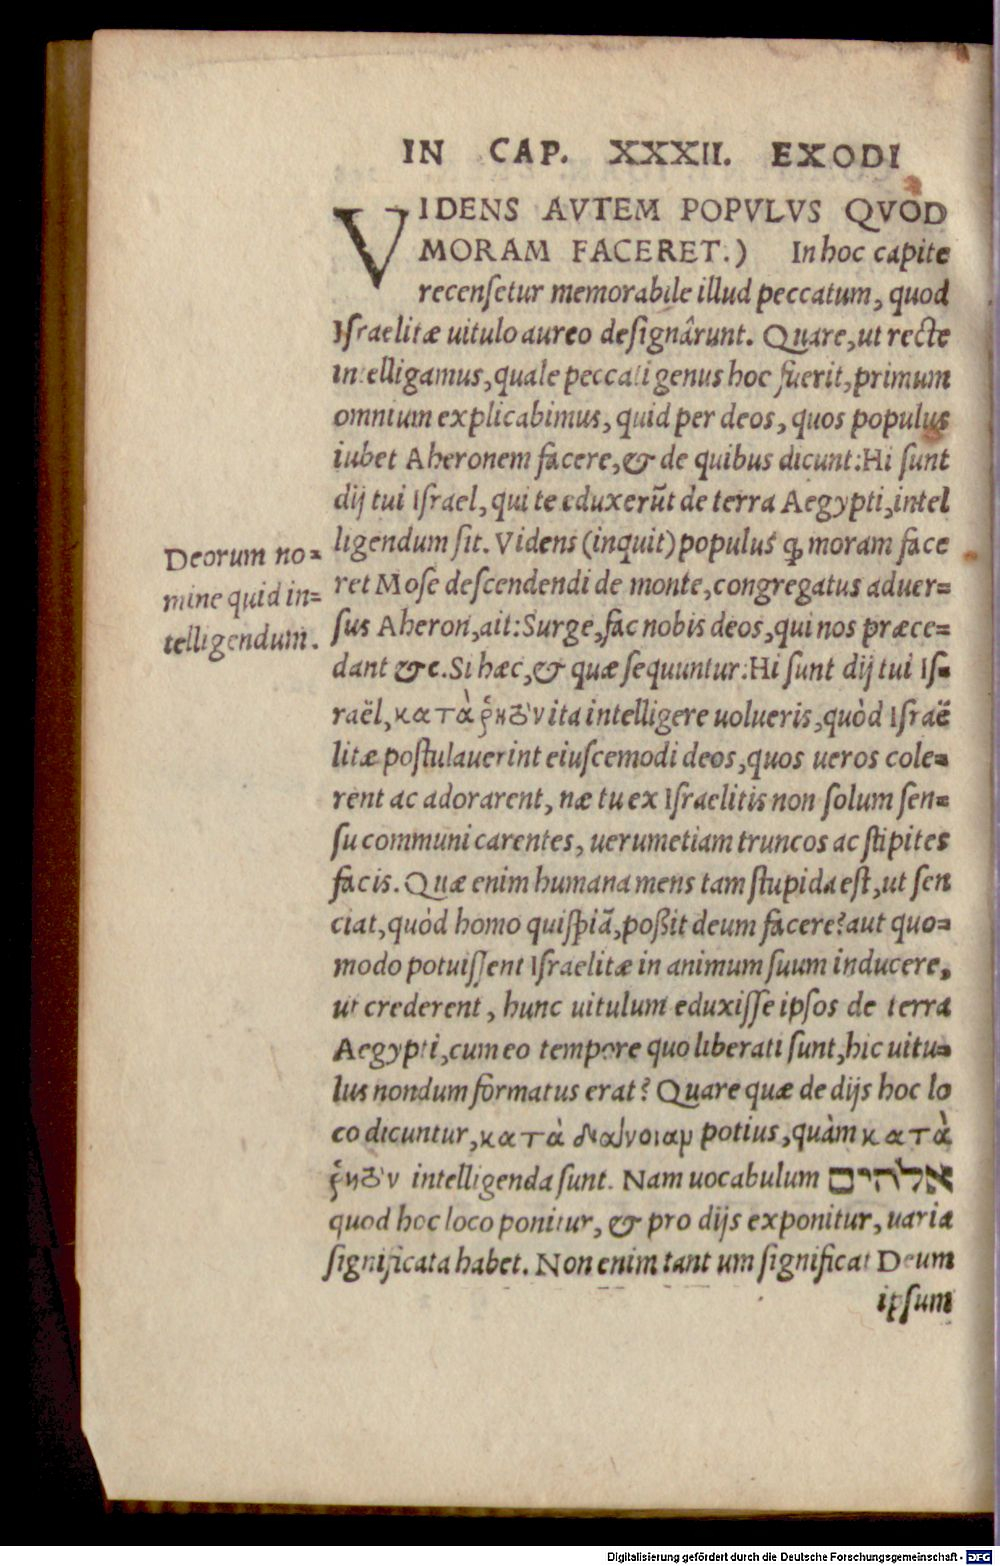 IN CAP. XXXII. EXODI
VIDENS AVTEM POPVLVS QVOD
MORAM FACERET.) In hoc capite
recensetur memorabile illud peccatum, quod
Israelitæ uitulo aureo designârunt. Quare, ut recte
intelligamus, quale peccati genus hoc fuerit, primum
omnium explicabimus, quid per deos, quos populus
iubet Aheronem facere, & de quibus dicunt: Hi sunt
dij tui Israel, qui te eduxerũt de terra Aegypti, intel
ligendum sit. Videns (inquit) populus ꝙ moram face
Deorum no=
mine quid in=
telligendum.
ret Mose descendendi de monte, congregatus aduer=
sus Aheron, ait: Surge, fac nobis deos, qui nos præce=
dant &c. Si hæc, & quæ sequuntur: Hi sunt dij tui Is=
raël, κατὰ ῥητὸν ita intelligere uolueris, quòd Israë
litæ postulauerint eiuscemodi deos, quos ueros cole=
rent ac adorarent, næ tu ex Israelitis non solum sen=
su communi carentes, uerumetiam truncos ac stipites
facis. Quæ enim humana mens tam stupida est, ut sen
ciat, quòd homo quispiã, poßit deum facere? aut quo=
modo potuissent Israelitæ in animum suum inducere,
ut crederent, hunc uitulum eduxisse ipsos de terra
Aegypti, cum eo tempore quo liberati sunt, hic uitu=
lus nondum formatus erat? Quare quæ de dijs hoc lo
co dicuntur, κατὰ διάνοιαν potius, quàm κατὰ
ῥητὸν intelligenda sunt. Nam uocabulum אלהים
quod hoc loco ponitur, & pro dijs exponitur, uaria
significata habet. Non enim tant um significat Deum
ipsum
Digitalisierung gefördert durch die Deutsche Forschungsgemeinschaft - DFG